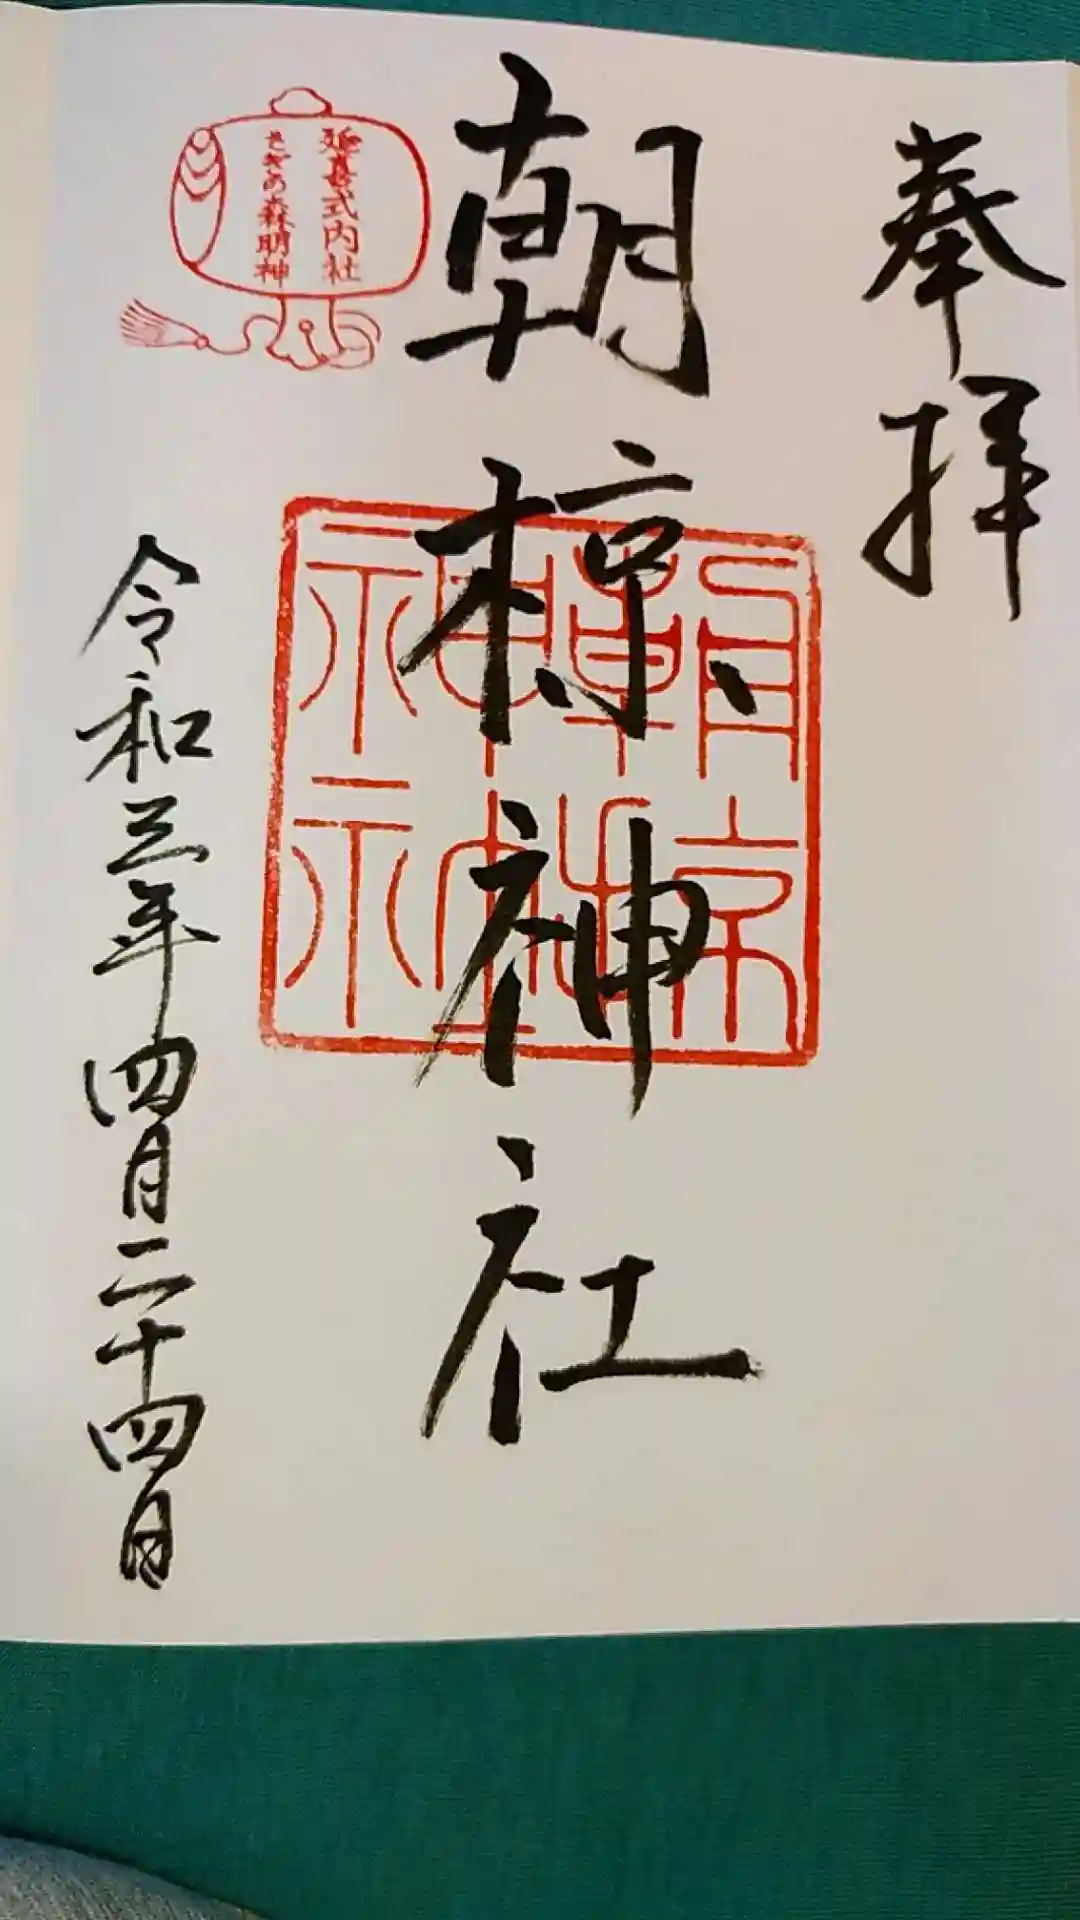 奉拝
朝椋神社
延喜式内社
さぎの森明神
令和三年四月二十四日